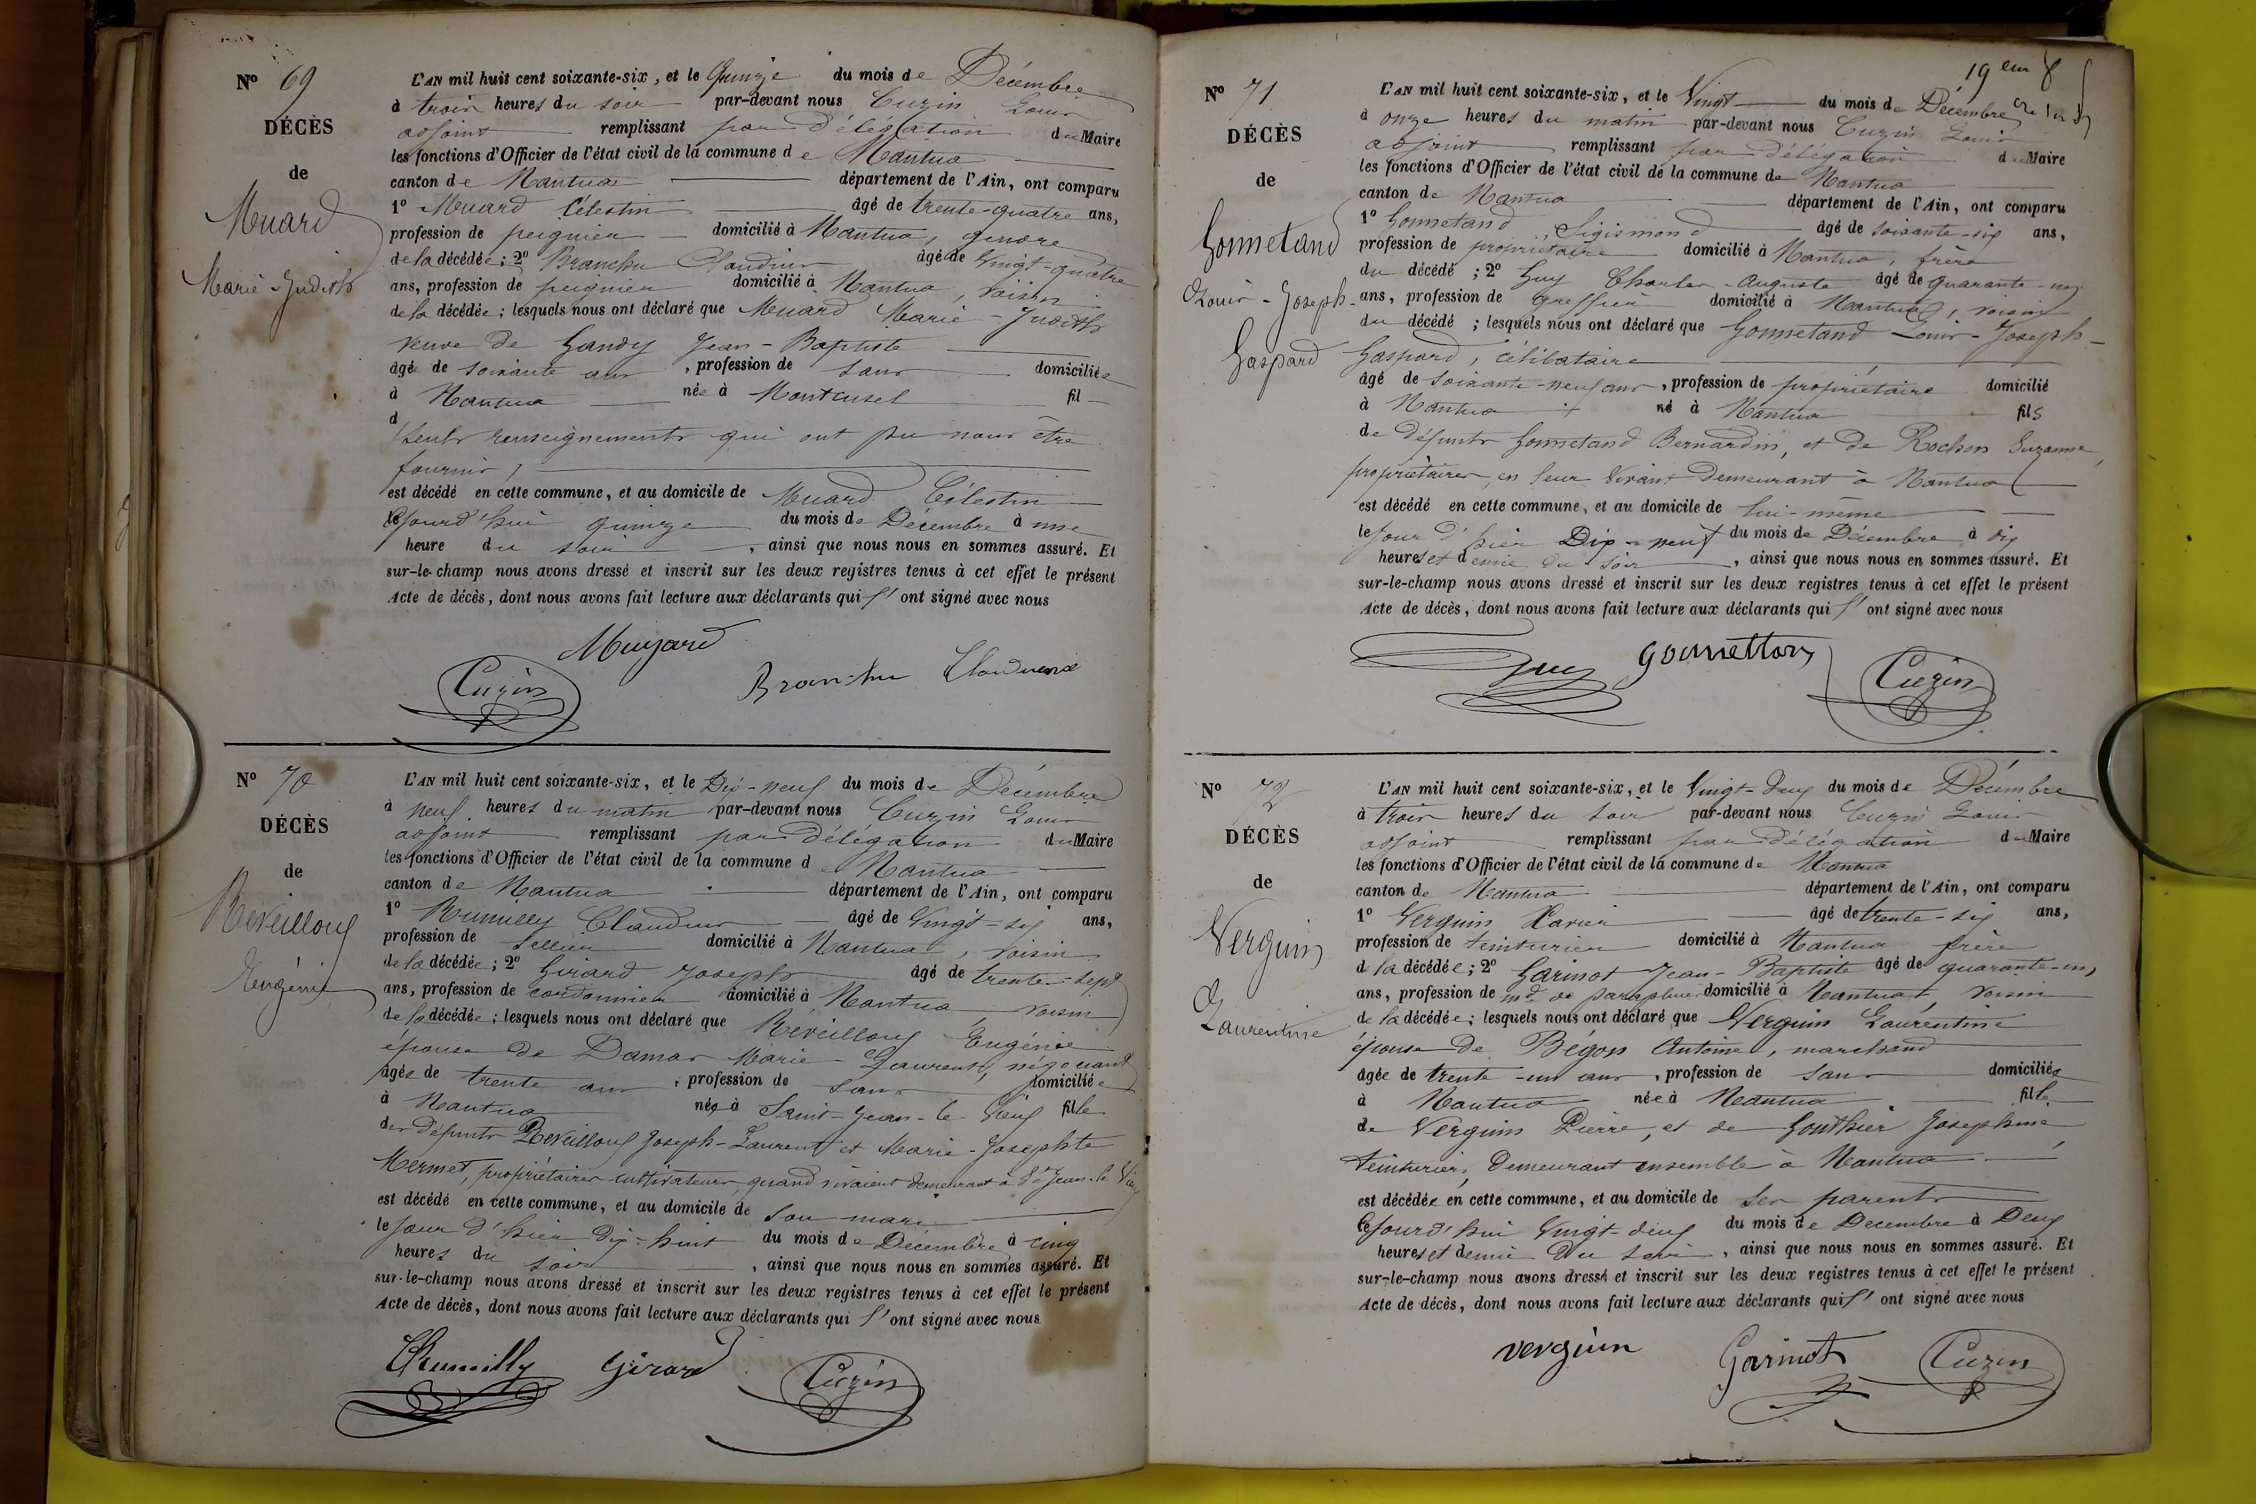 Nº 69
DÉCÈS
de
Muard
Marie-Judith
L'AN mil huit cent soixante-six, et le Quinze du mois de Décembre
à trois heures du soir par-devant nous Cuzin Louis
adjoint remplissant par délégation du Maire
les fonctions d'Officier de l'état civil de la commune de Mantua
canton de Nantua département de l'Ain, ont comparu
1º Muard Célestin âgé de trente-quatre ans,
profession de peignier domicilié à Nantua, gendre
de la décédée; 2º Branchu Claudius âgé de Vingt-quatre
ans, profession de peignier domicilié à Nantua, voisin
de la décédée; lesquels nous ont déclaré que Muard Marie-Judith
veuve de Gandy Jean-Baptiste
âgée de soixante ans, profession de sans domiciliée
à Nantua née à Montcusel fil
d
seuls renseignements qui ont pu nous être
fournis,
est décédé en cette commune, et au domicile de Muard Célestin
cejourd'hui quinze du mois de Décembre à une
heure du soir, ainsi que nous nous en sommes assuré. Et
sur-le-champ nous avons dressé et inscrit sur les deux registres tenus à cet effet le présent
Acte de décès, dont nous avons fait lecture aux déclarants qui l'ont signé avec nous
Muyard
Cuzin
Branchu Claudius
Nº 70
DÉCÈS
de
Reveilloux
Eugénie
L'AN mil huit cent soixante-six, et le Dix-neuf du mois de Décembre
à neuf heures du matin par-devant nous Cuzin Louis
adjoint remplissant par délégation du Maire
les fonctions d'Officier de l'état civil de la commune de Nantua
canton de Nantua département de l'Ain, ont comparu
1º Rumilly Claudius âgé de Vingt-six ans,
profession de Sellier domicilié à Nantua, voisin
de la décédée; 2º Girard Joseph âgé de trente-sept
ans, profession de cordonnier domicilié à Nantua voisin
de la décédée; lesquels nous ont déclaré que Réveilloux Eugénie
épouse de Damas Marie-Laurent, négociant
âgée de trente ans, profession de sans domiciliée
à Nantua née à Saint-Jean-le-Vieux fille
des défunts Reveilloux Joseph-Laurent et Marie-Josephte
Mermet, propriétaires cultivateurs, quand vivaient demeurant à St Jean-le Vieux
est décédé en cette commune, et au domicile de son mari
le jour d'hier dix-huit du mois de Décembre à cinq
heures du soir, ainsi que nous nous en sommes assuré. Et
sur-le-champ nous avons dressé et inscrit sur les deux registres tenus à cet effet le présent
Acte de décès, dont nous avons fait lecture aux déclarants qui l'ont signé avec nous
Rumilly Girard Cuzin
19 eme
Nº 71
DÉCÈS
de
Gonnetand
Louis-Joseph-
Gaspard
L'AN mil huit cent soixante-six, et le Vingt du mois de Décembre
à onze heures du matin par-devant nous Cuzin Louis
adjoint remplissant par délégation du Maire
les fonctions d'Officier de l'état civil de la commune de Nantua
canton de Nantua département de l'Ain, ont comparu
1º Gonnetand, Sigismond âgé de soixante-six ans,
profession de propriétaire domicilié à Nantua, frère
du décédé; 2º Guy Charles-Auguste âgé de quarante-un
ans, profession de greffier domicilié à Nantua, voisin
du décédé; lesquels nous ont déclaré que Gonnetand Louis-Joseph-
Gaspard, célibataire
âgé de soixante-neuf ans, profession de propriétaire domicilié
à Nantua né à Nantua fils
de défunts Gonnetand Bernardin, et de Rochon Suzanne,
propriétaires, en leur vivant demeurant à Nantua
est décédé en cette commune, et au domicile de lui-même
le jour d'hier Dix-neuf du mois de Décembre à dix
heures et demie du soir, ainsi que nous nous en sommes assuré. Et
sur-le-champ nous avons dressé et inscrit sur les deux registres tenus à cet effet le présent
Acte de décès, dont nous avons fait lecture aux déclarants qui l'ont signé avec nous
Guy Cuzin
Nº 72
DÉCÈS
de
Verguin
Laurentine
L'AN mil huit cent soixante-six, et le Vingt-Deux du mois de Décembre
à trois heures du soir par-devant nous Cuzin Louis
adjoint remplissant par délégation du Maire
les fonctions d'Officier de l'état civil de la commune de Nantua
canton de Nantua département de l'Ain, ont comparu
1º Verguin Xavier âgé de trente-six ans,
profession de teinturier domicilié à Nantua frère
de la décédée; 2º Garinot Jean-Baptiste âgé de quarante-un
ans, profession de md de parapluies domicilié à Nantua, voisin
de la décédée; lesquels nous ont déclaré que Verguin Laurentine
épouse de Bégon Antoine, marchand
âgée de trente-un ans, profession de sans domiciliée
à Nantua née à Nantua fille
de Verguin Pierre, et de Gouthier Josephine,
teinturiers, demeurant ensemble à Nantua
est décédée en cette commune, et au domicile de ses parents
cejourd'hui Vingt-deux du mois de Décembre à Deux
heures et demie du soir, ainsi que nous nous en sommes assuré. Et
sur-le-champ nous avons dressé et inscrit sur les deux registres tenus à cet effet le présent
Acte de décès, dont nous avons fait lecture aux déclarants qui l'ont signé avec nous
Verguin Garinot Cuzin